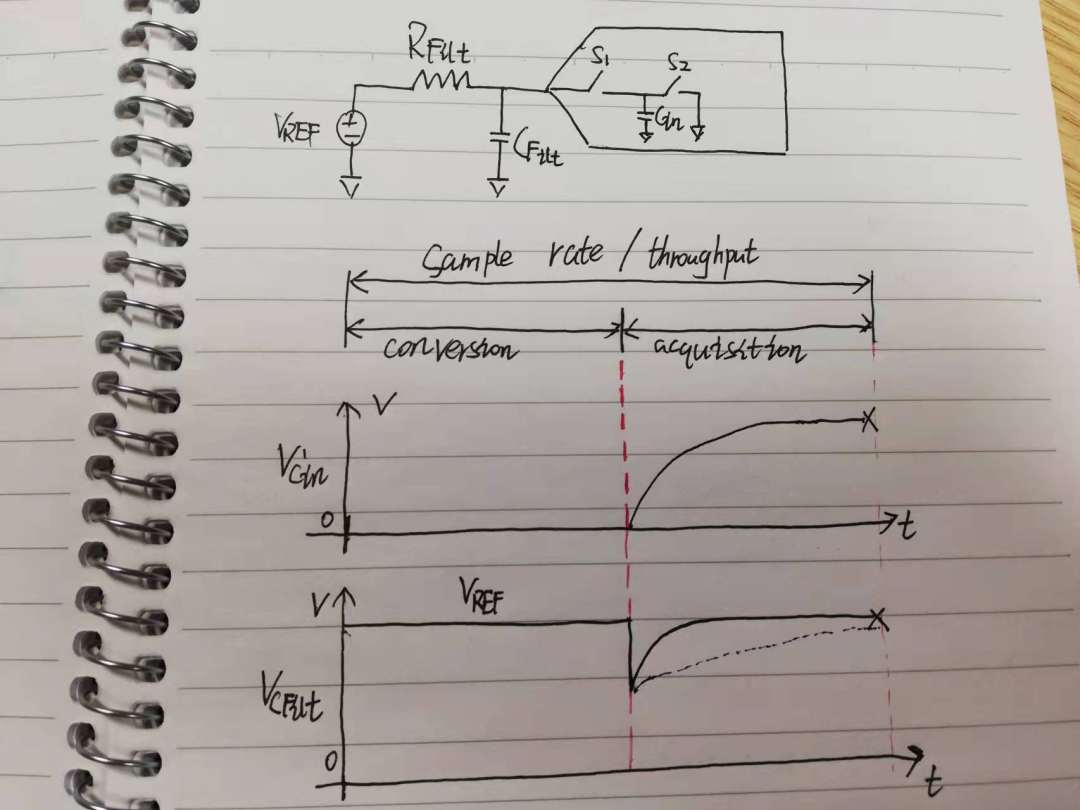 RFilt
S1 S2
VREF + − CFilt Cin
Sample rate / throughput
conversion acquisition
V
VCin
0 t
V VREF
VCFilt
0
t